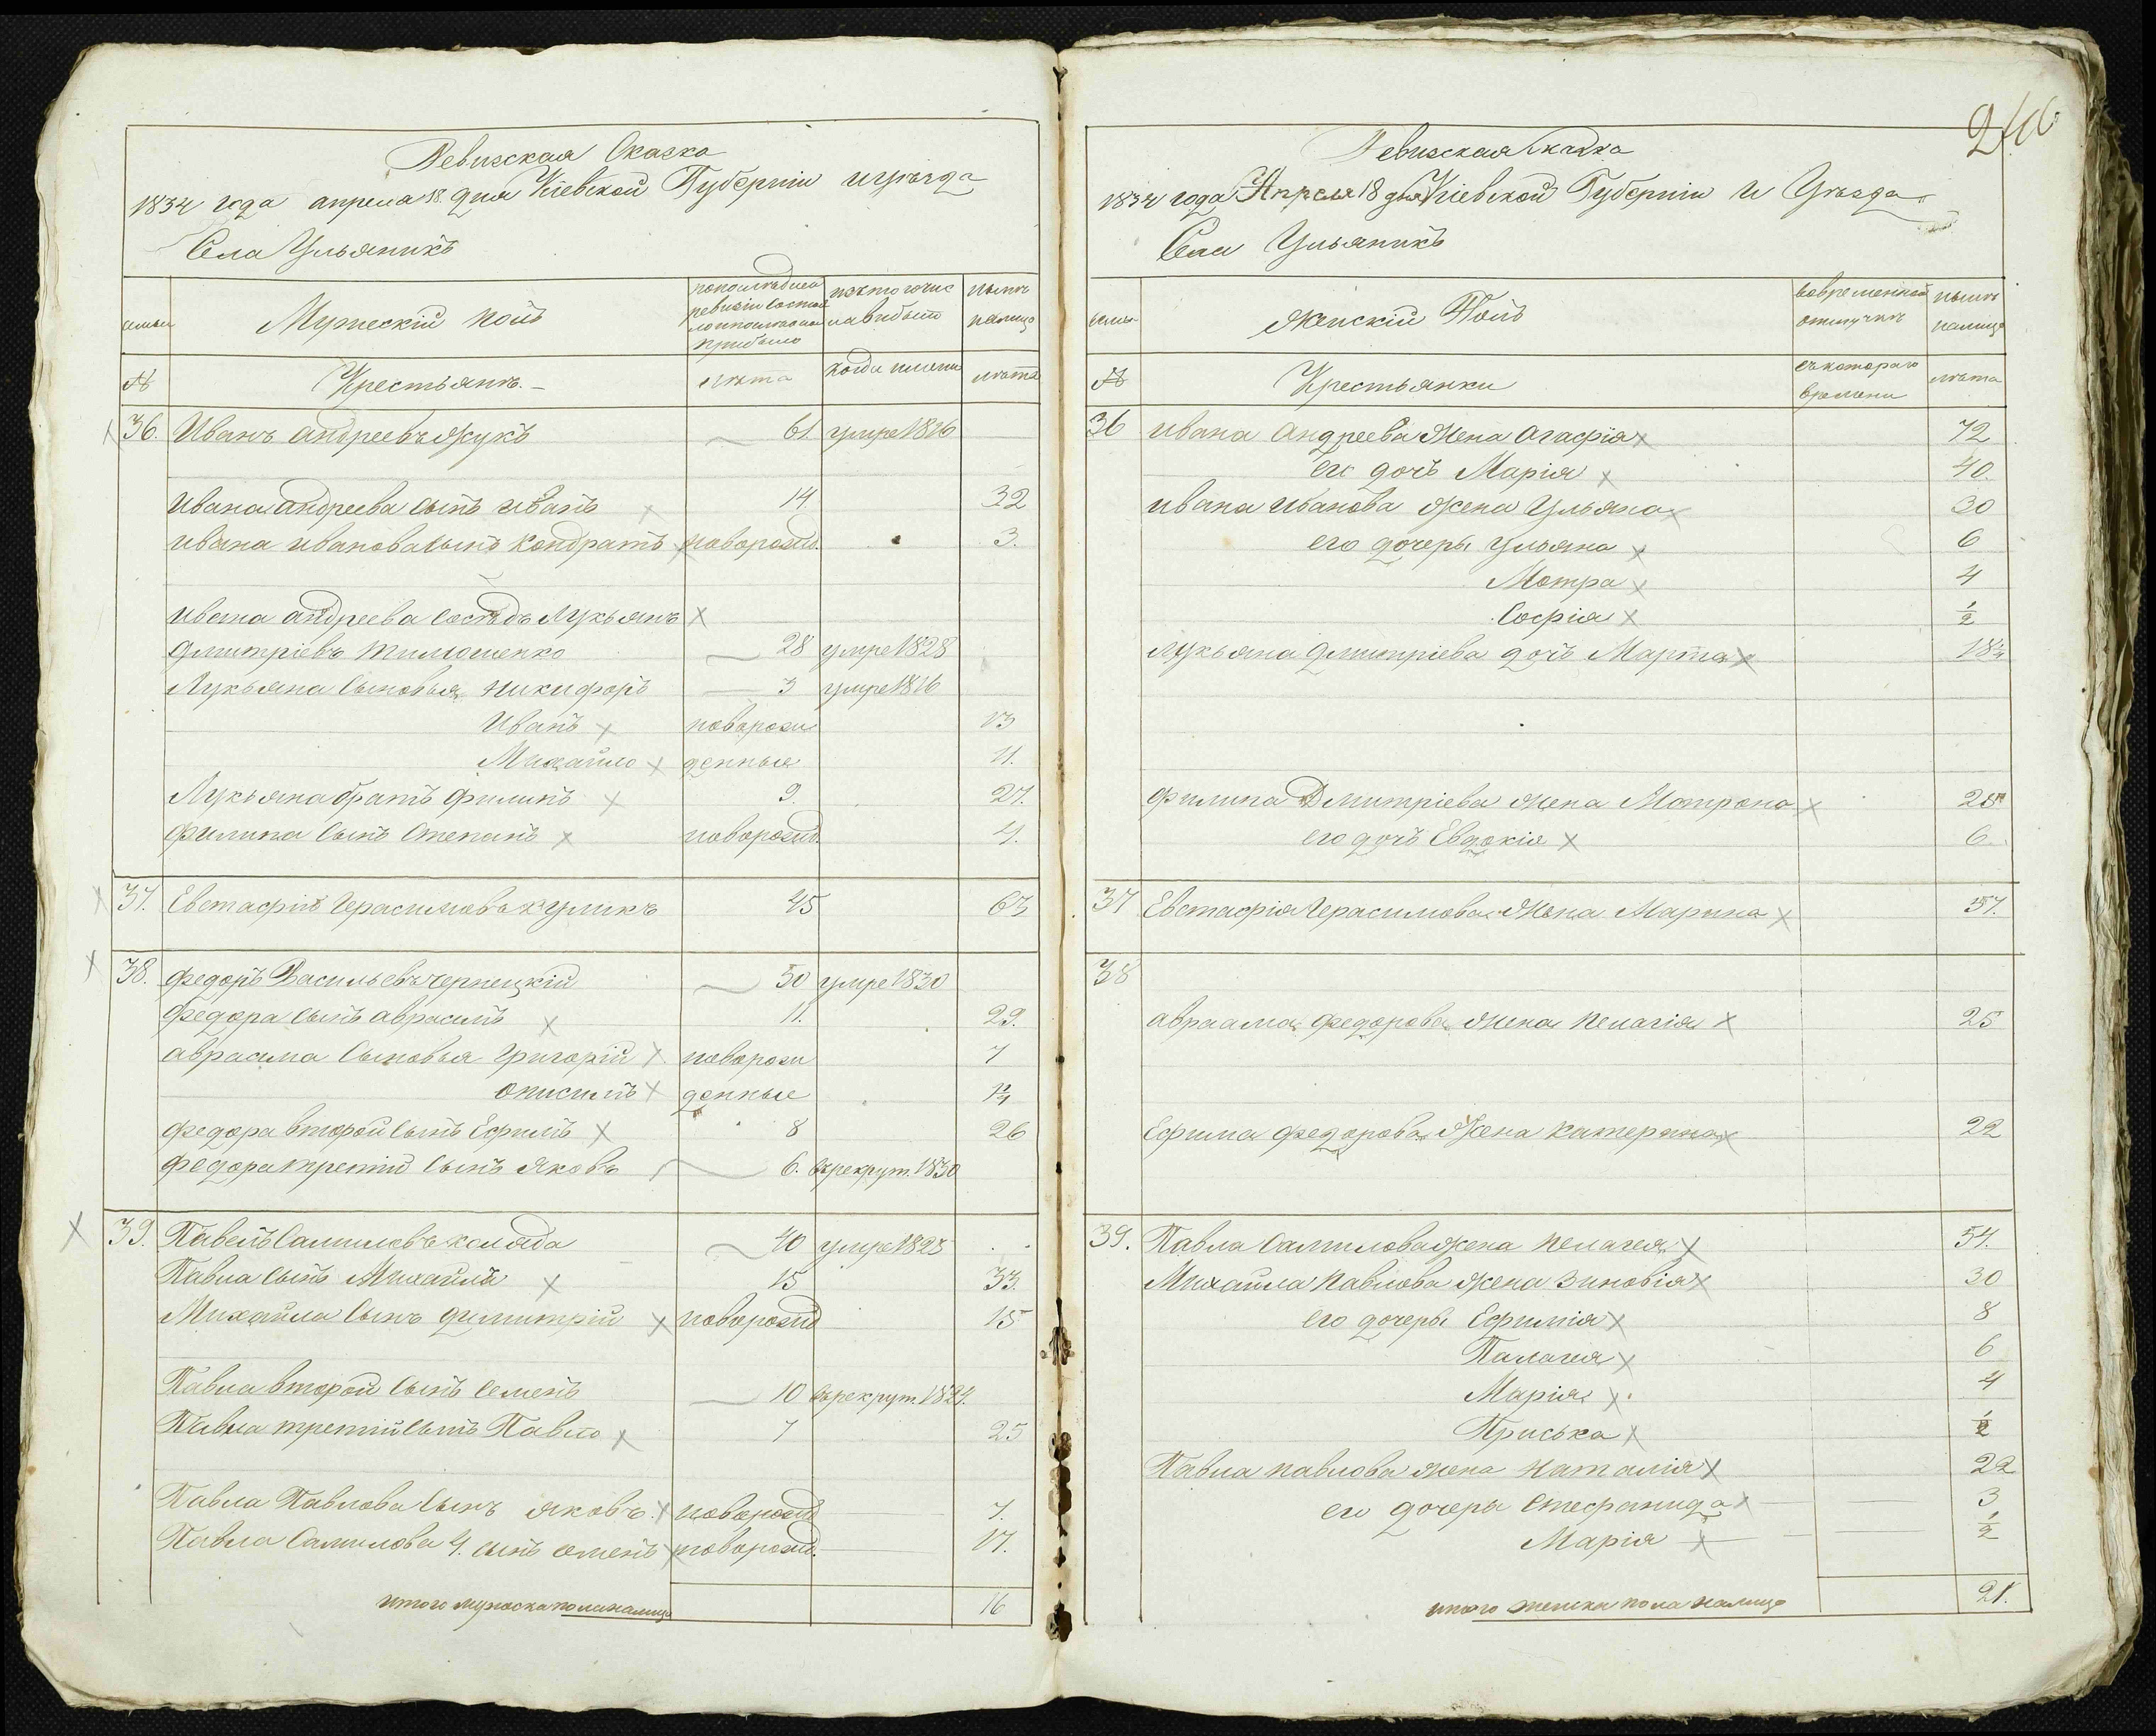 Ревизская Сказка
1834 года апреля 18. дня Кіевской Губерніи и уѣзда
Села Ульяникъ
семьи
Мужескій полъ
попослѣдней ревизіи состояло ипослѣ оной прибыло
изъ того числа выбыло
нынѣ налицо
№
Крестьянъ.
лѣта
когда имени
лѣта
36. Иванъ андреевъ Жукъ 61. умре 1816
Ивана андреева сынъ иванъ 14 32
ивана иванова сынъ Кондратъ новорожд. 3.
ивана андреева сосѣдъ Лукьянъ
дмитріевъ тимошенко 28 умре 1828
Лукьяна сыновья никифоръ 3 умре 1816
Иванъ новорож 13
Михайло денные 11.
Лукьяна братъ филипъ 9. 27.
филипа сынъ Степанъ новорожд. 4.
37. Евстафій Герасимовъ куликъ 45 63
38. федоръ Васильевъ чернецкій 50 умре 1830
федора сынъ авраамъ 11. 29.
авраама сыновья григорій новорож 7
онисимъ денные 1¼
федора второй сынъ Ефимъ 8 26
федора третій сынъ яковъ 6. врекрут. 1830
39. Павелъ Самиловъ коляда 40 умре 1825
Павла сынъ Михайла 15 33.
Михайла сынъ димитрій новорожд 15
Павла второй сынъ семенъ 10 врекрут. 1824.
Павла третій сынъ Павло 7 25
Павла Павлова сынъ яковъ новорожд 7.
Павла Самилова 4. сынъ семенъ новорожд. 17.
итого мужеска пола налицо 16
Ревизская Сказка
1834 года Апреля 18 дня Кіевской Губерніи и Уѣзда
Села Ульяникъ
семьи
Женскій Полъ
вовременной отлучкѣ
нынѣ налицо
№
Крестьянки
съкотораго времени
лѣта
36 ивана андреева жена Агафія 72
его дочь Марія 40.
ивана иванова жена Ульяна 30
его дочеры ульяна 6
Мотра 4
Софія ½
лукьяна дмитріева дочь Марта 18¼
филипа Дмитріева жена Мотрона 25
его дочь Евдокія 6.
37 Евстафія Герасимова жена Марина 57.
38
авраама федорова жена пелагія 25
Ефима федорова жена катерина 22
39. Павла Самилова жена пелагея 54.
Михайла павлова жена зиновія 30
его дочеры Ефимія 8
Палагея 6
Марія 4
Приська ½
Павла павлова жена наталія 22
его дочеры Стефанида 3
Марія ½
итого женска пола налицо 21.